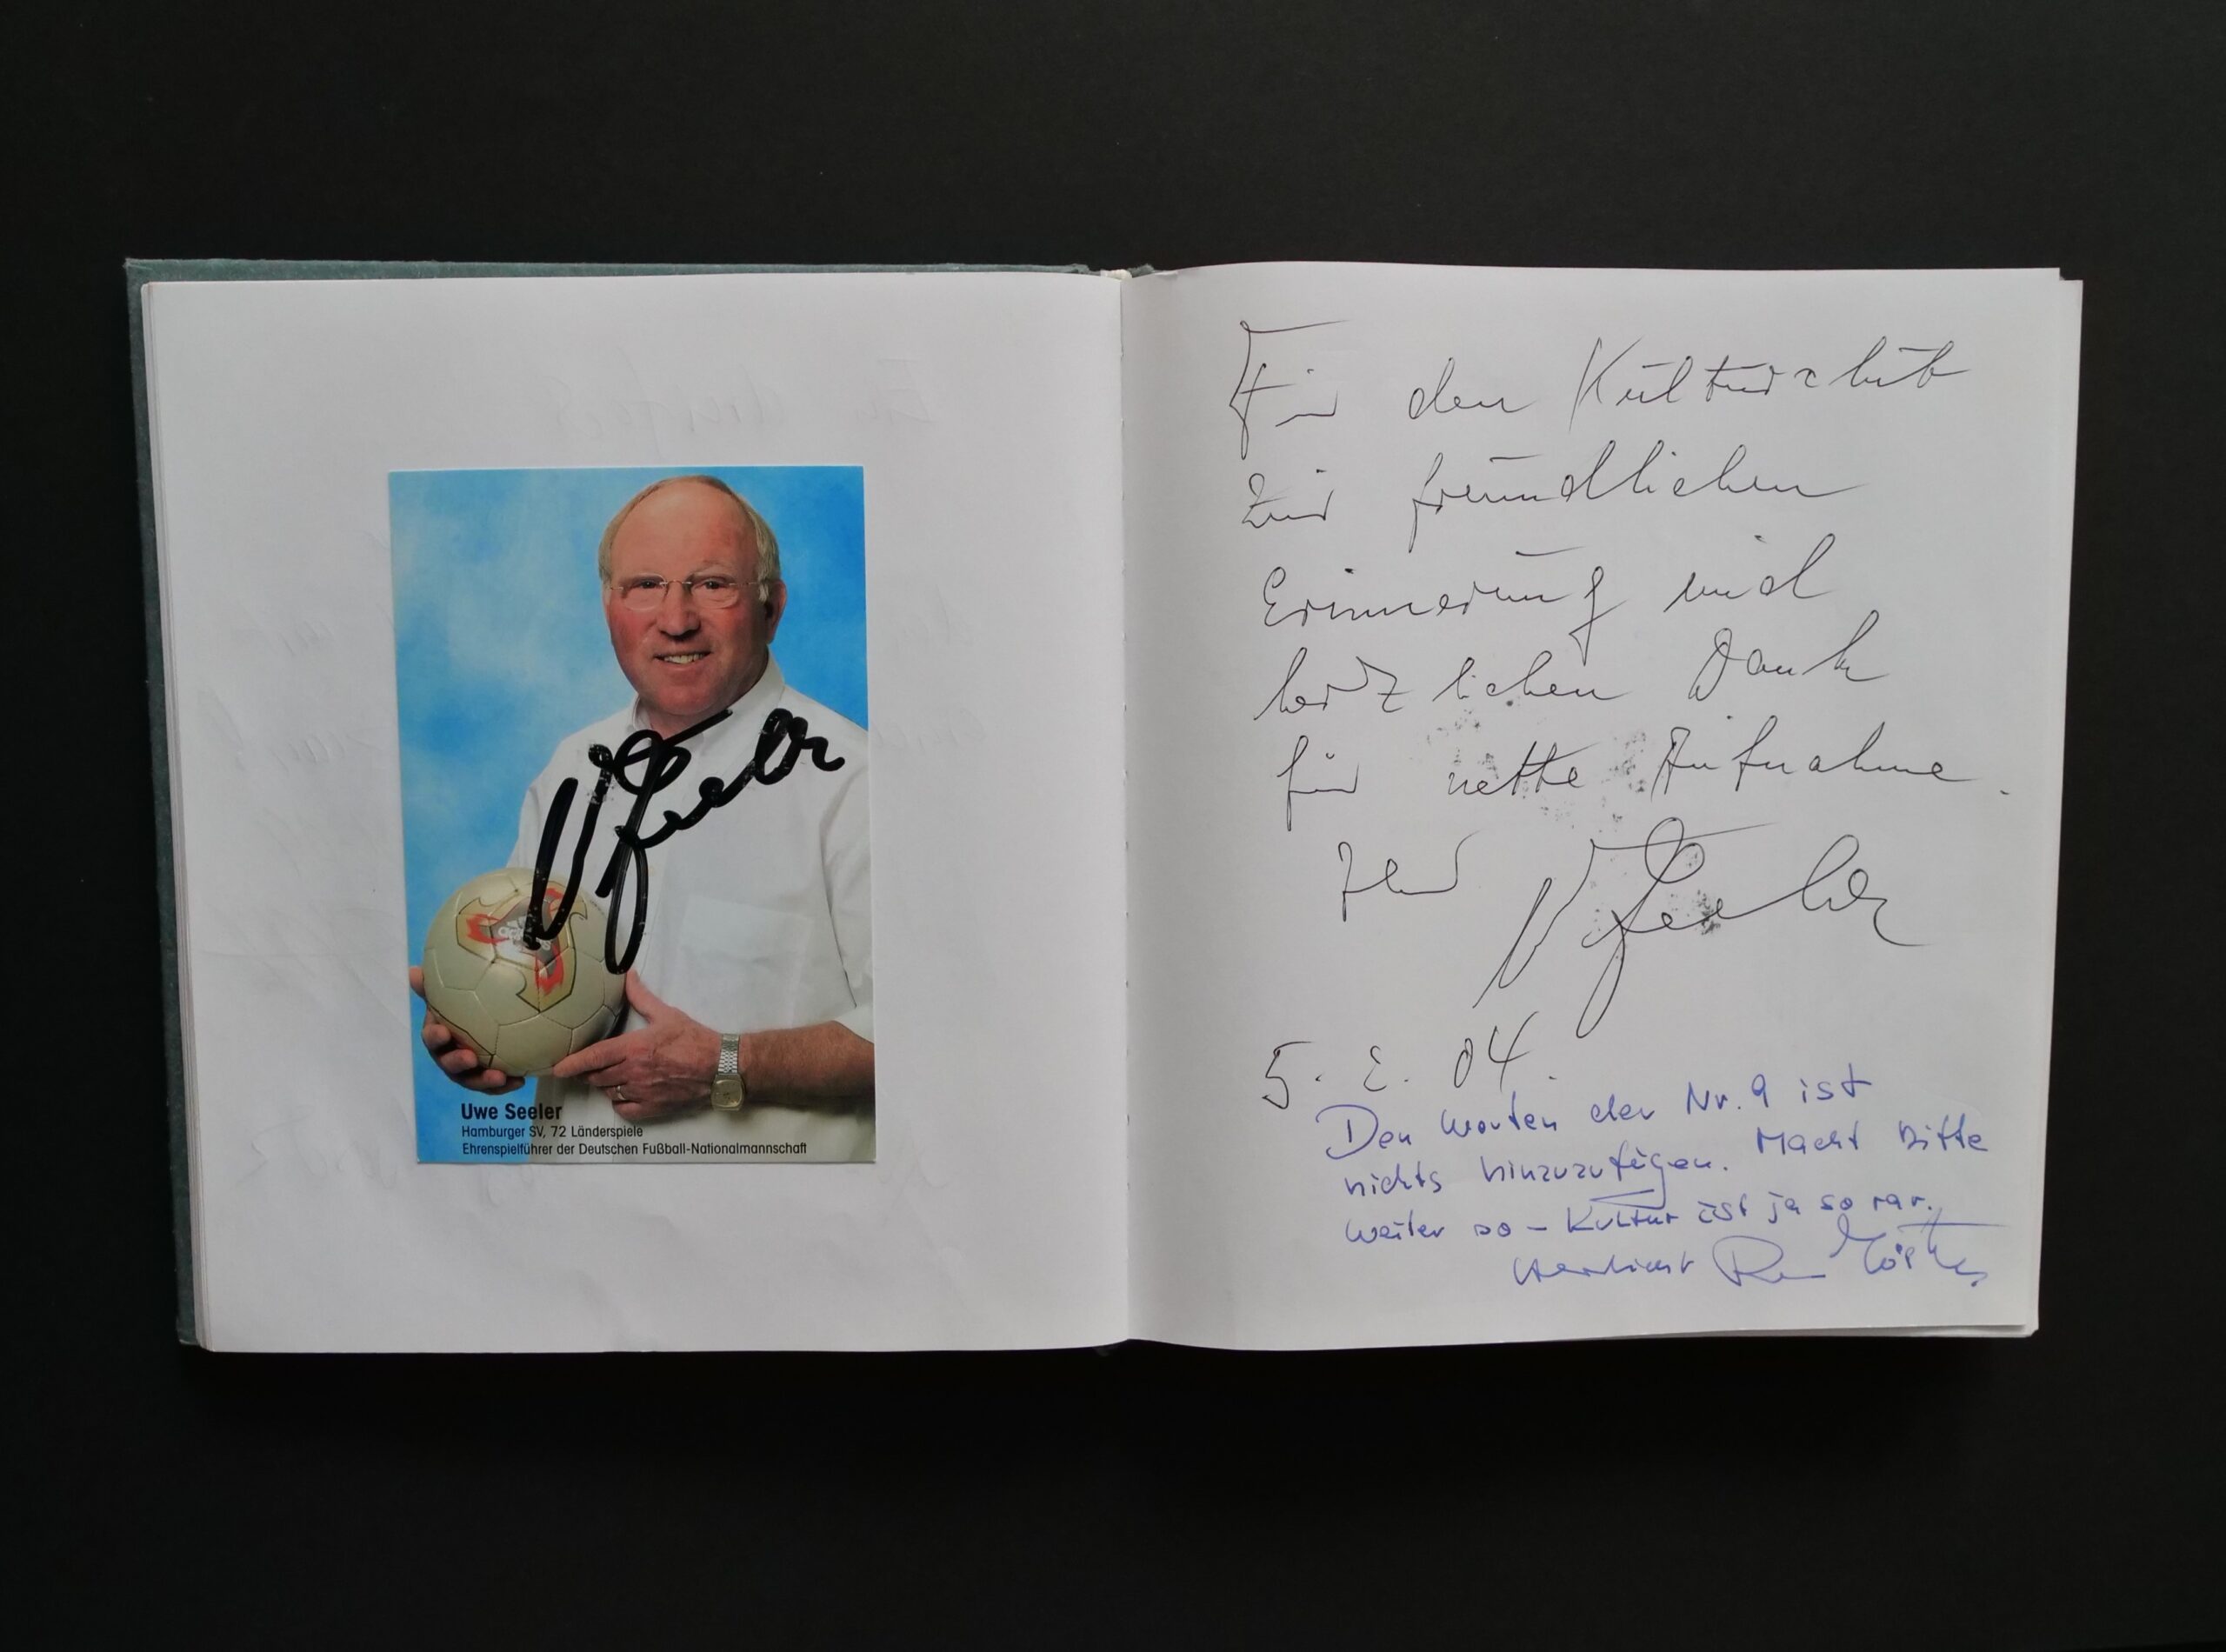 U Seeler
Uwe Seeler
Hamburger SV, 72 Länderspiele
Ehrenspielführer der Deutschen Fußball-Nationalmannschaft
Für den Kulturclub
zur freundlichen
Erinnerung und
herzlichen Dank
für nette Aufnahme.
Ihr U Seeler
5. 2. 04.
Den Worten der Nr. 9 ist
nichts hinzuzufügen. Macht bitte
weiter so – Kultur ist ja so rar.
Herzlichst